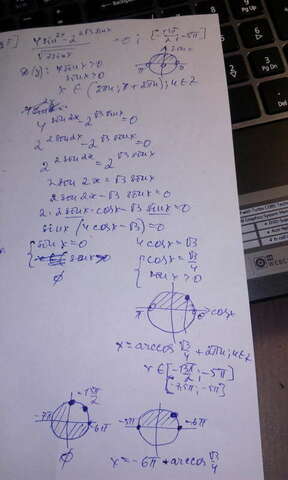 4^{sin2x} - 2^{2√3 sinx} / √7sinx = 0; [-13π/2; -5π]
D(y): 7sinx>0
sinx>0
x ∈ (2πn; π+2πn); n∈Z
4^{sin2x} - 2^{2√3 sinx} = 0
2^{2sin2x} - 2^{2√3 sinx} = 0
2^{2sin2x} = 2^{2√3 sinx}
2sin2x = √3 sinx
2sin2x - √3 sinx = 0
2·2sinx·cosx - √3 sinx = 0
sinx(4cosx - √3) = 0
sinx = 0
∅
4cosx = √3
cosx = √3/4
sinx > 0
π 0 cosx
x = arccos √3/4 + 2πn; n∈Z
x ∈ [-13π/2; -5π]
[-7,5π; -5π]
-7π -6π
∅
-5π -6π
x = -6π + arccos √3/4